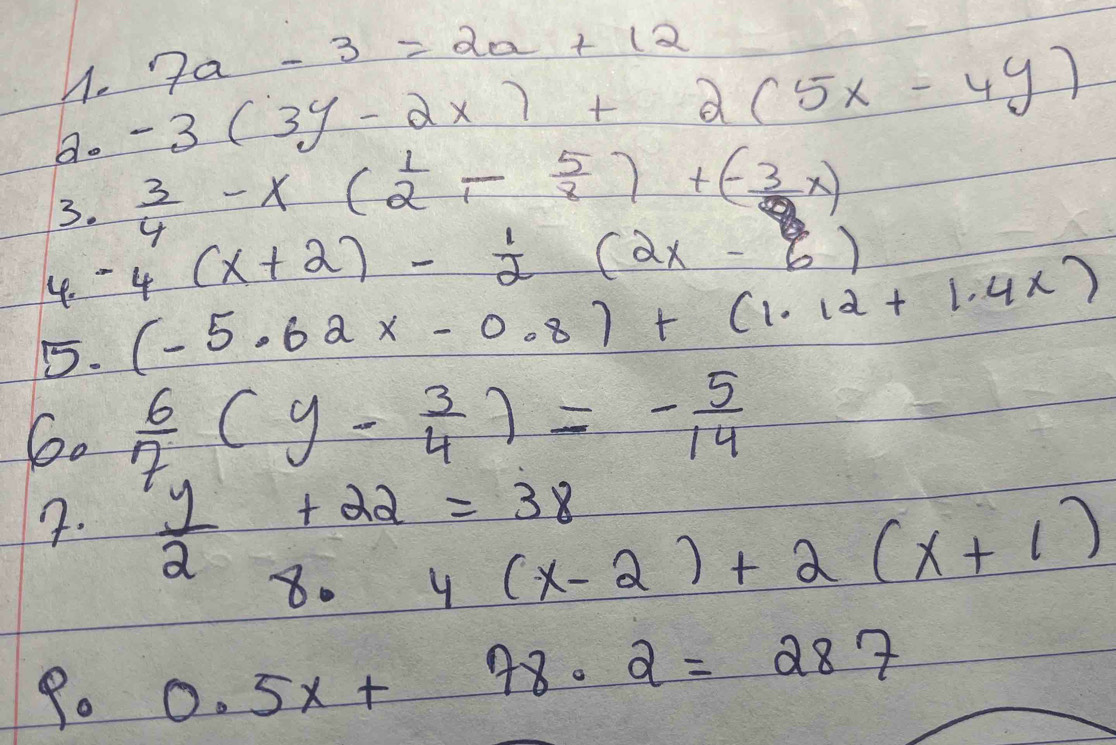 1. 7a - 3 = 2a + 12
2. -3 (3y - 2x) + 2 (5x - 4y)
3. 3/4 - x (1/2 - 5/8) + (-3x)
4. -4 (x+2) - 1/2 (2x - 6)
5. (-5.62x - 0.8) + (1.12 + 1.4x)
6. 6/7 (y - 3/4) = -5/14
7. y/2 + 22 = 38
8. 4 (x-2) + 2 (x+1)
9. 0.5x + 78.2 = 287